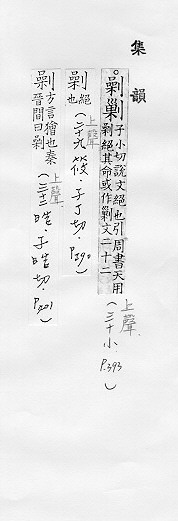 集韻
。剿巢 子小切說文絕也引周書天用
剿絕其命或作剿文二十二
上聲(三十小.P.393)
剿 絕
也
上聲(二十九篠.子了切.P.390)
剿 方言獪也秦
晉間曰剿
上聲(三十二晧.子晧切.P.401)